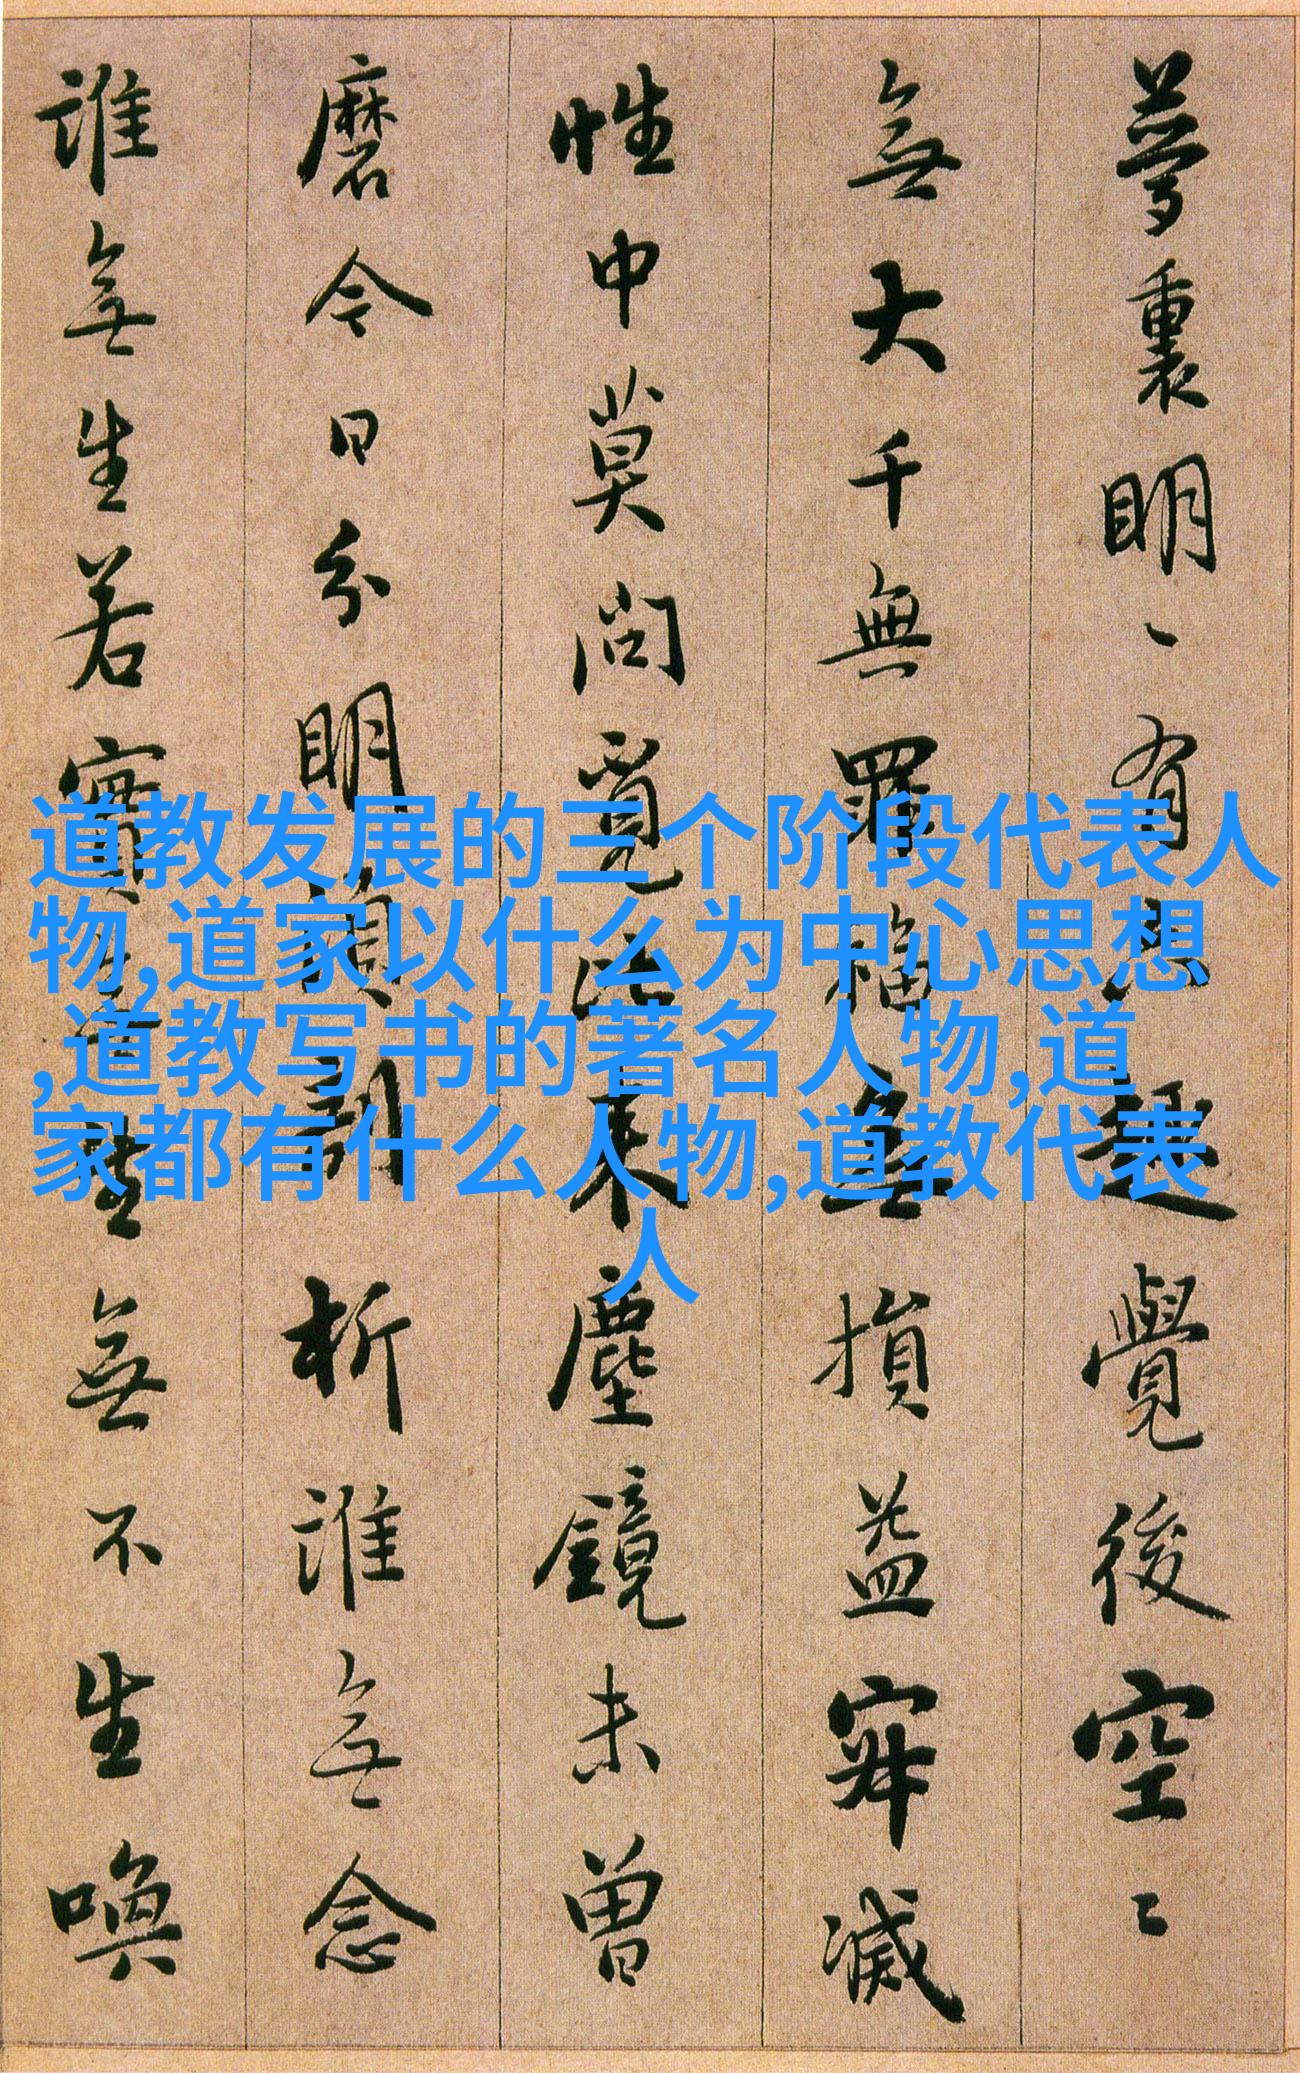 夢裏明〻有六趣覺後空〻
無大千無罪福無損益寂滅
性中莫問覓比来塵鏡未曾
磨今日分明須剖析誰無念
誰無生若實無生無不生喚
道教发展的三个阶段代表人
物,道家以什么为中心思想
,道教写书的著名人物,道
家都有什么人物,道教代表
人